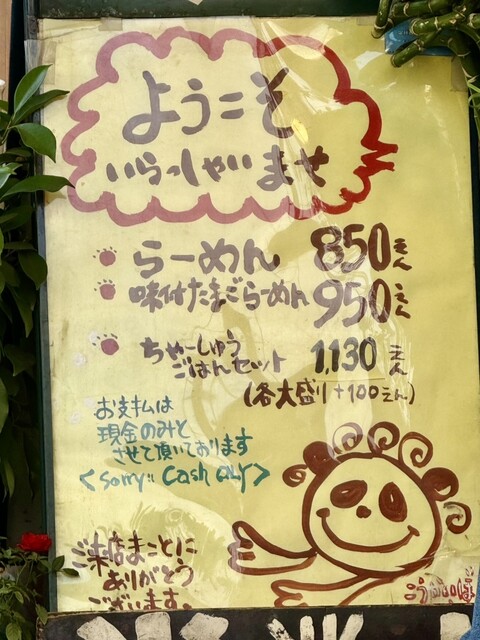 ようこそ
いらっしゃいませ
らーめん 850えん
味付たまごらーめん 950えん
ちゃーしゅう
ごはんセット 1,130えん
(各大盛り+100えん)
お支払は
現金のみと
させて頂いております
<sorry!! Cash only>
ご来店まことに
ありがとう
ございます。